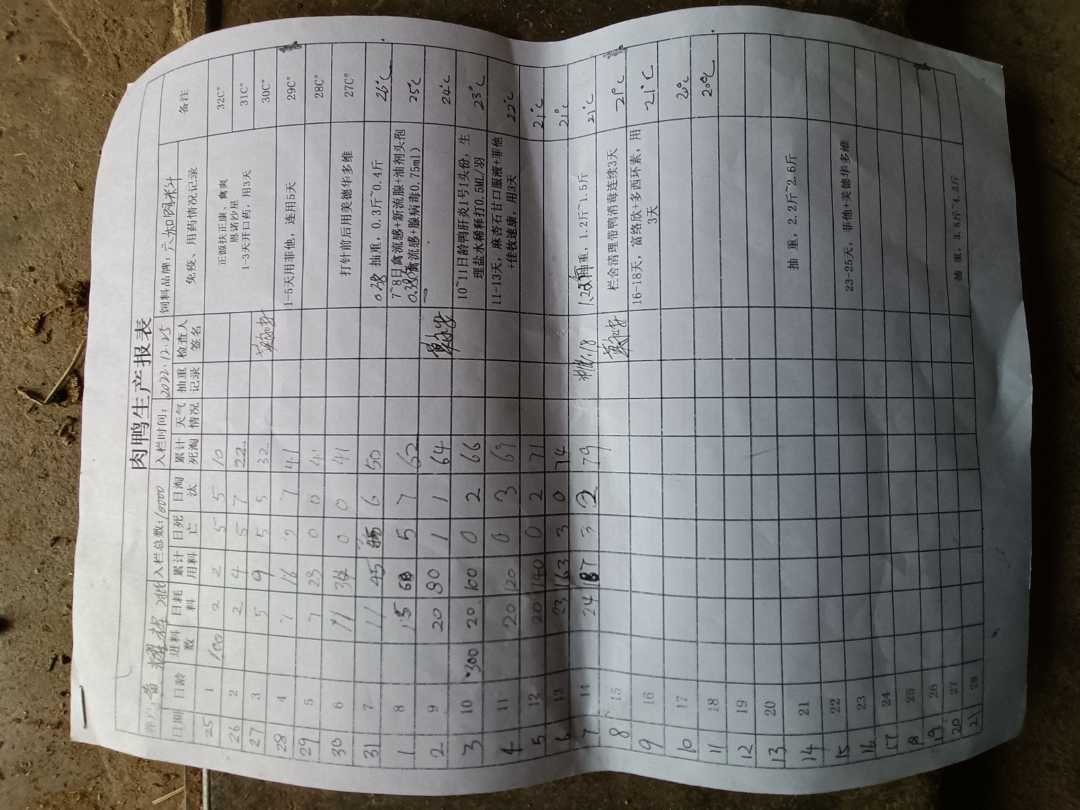 肉鸭生产报表
入栏总数:10000 入栏时间:2022.12.25 饲料品牌:
日期 日龄 进料数 日耗料 累计用料 日死亡 日淘汰 累计死淘 天气情况 抽重记录 检查人签名 免疫、用药情况记录 备注
25 1 100 2 2 5 5 10 正骰扶正康、禽爽 恩诺沙星 32C°
26 2 2 4 5 7 22 1-3天开口药,用3天 31C°
27 3 5 9 5 5 32 30C°
28 4 7 16 2 7 41 1-5天用菲他,连用5天 29C°
29 5 7 23 0 0 41 28C°
30 6 11 34 0 0 41 打针前后用美德华多维 27C°
31 7 11 45 6 50 抽重,0.3斤~0.4斤 26℃
1 8 15 60 5 7 62 7~8日禽流感+新流腺+油剂头孢 禽流感+腺病毒0.75ml) 25℃
2 9 20 80 1 1 64 24℃
3 10 300 20 100 0 2 66 10~11日龄鸭肝炎1号1头份,生理盐水稀释打0.5ML/羽 23℃
4 11 20 120 0 3 69 11-13天,麻杏石甘口服液+菲他+佳牧速康,用3天 22℃
5 12 20 140 0 2 71 21℃
6 13 23 163 3 0 74 21℃
7 14 24 187 3 2 79 抽重,1.2斤~1.5斤 21℃
8 15 栏舍清理带鸭消毒连续3天 21℃
9 16 16-18天,富络欣+多西环素,用3天 21℃
10 17 20℃
11 18 20℃
12 19
13 20 抽重,2.2斤~2.6斤
14 21
15 22
16 23 23-25天,菲他+美德华多维
17 24
18 25
19 26
20 27 抽重,
21 28